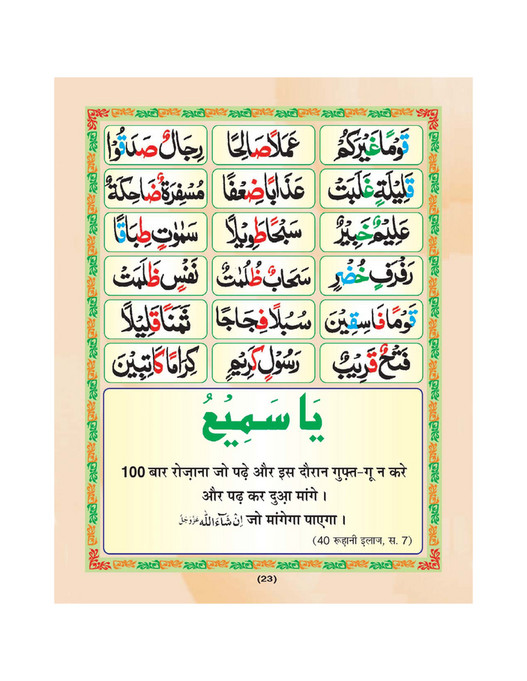 قَوْمًا غَيْرَكُمْ عَمَلًا صَالِحًا رِجَالٌ صَدَقُوْا
قَلِيْلَةٍ غَلَبَتْ عَذَابًا ضِعْفًا مُسْفِرَةٌ ضَاحِكَةٌ
عَلِيْمٌ خَبِيْرٌ سَبْحًا طَوِيْلًا سَمٰوٰتٍ طِبَاقًا
رَفْرَفٍ خُضْرٍ سَحَابٌ ظُلُمٰتٌ نَفْسٍ ظَلَمَتْ
قَوْمًا فَاسِقِيْنَ سُبُلًا فِجَاجًا ثَمَنًا قَلِيْلًا
فَتْحٌ قَرِيْبٌ رَسُوْلٍ كَرِيْمٍ كِرَامًا كَاتِبِيْنَ
يَا سَمِيْعُ
100 बार रोज़ाना जो पढ़े और इस दौरान गुफ़्त-गू न करे
और पढ़ कर दुआ़ मांगे ।
اِنْ شَآءَ اللّٰه عَزَّوَجَلَّ जो मांगेगा पाएगा ।
(40 रूहानी इलाज, स. 7)
(23)